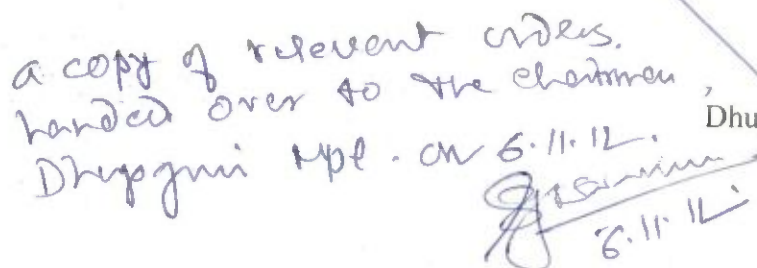 a copy of relevent orders.
handed over to the chairman,
Dhupguri Mpl. on 6.11.12.
Dhu
6.11.12.